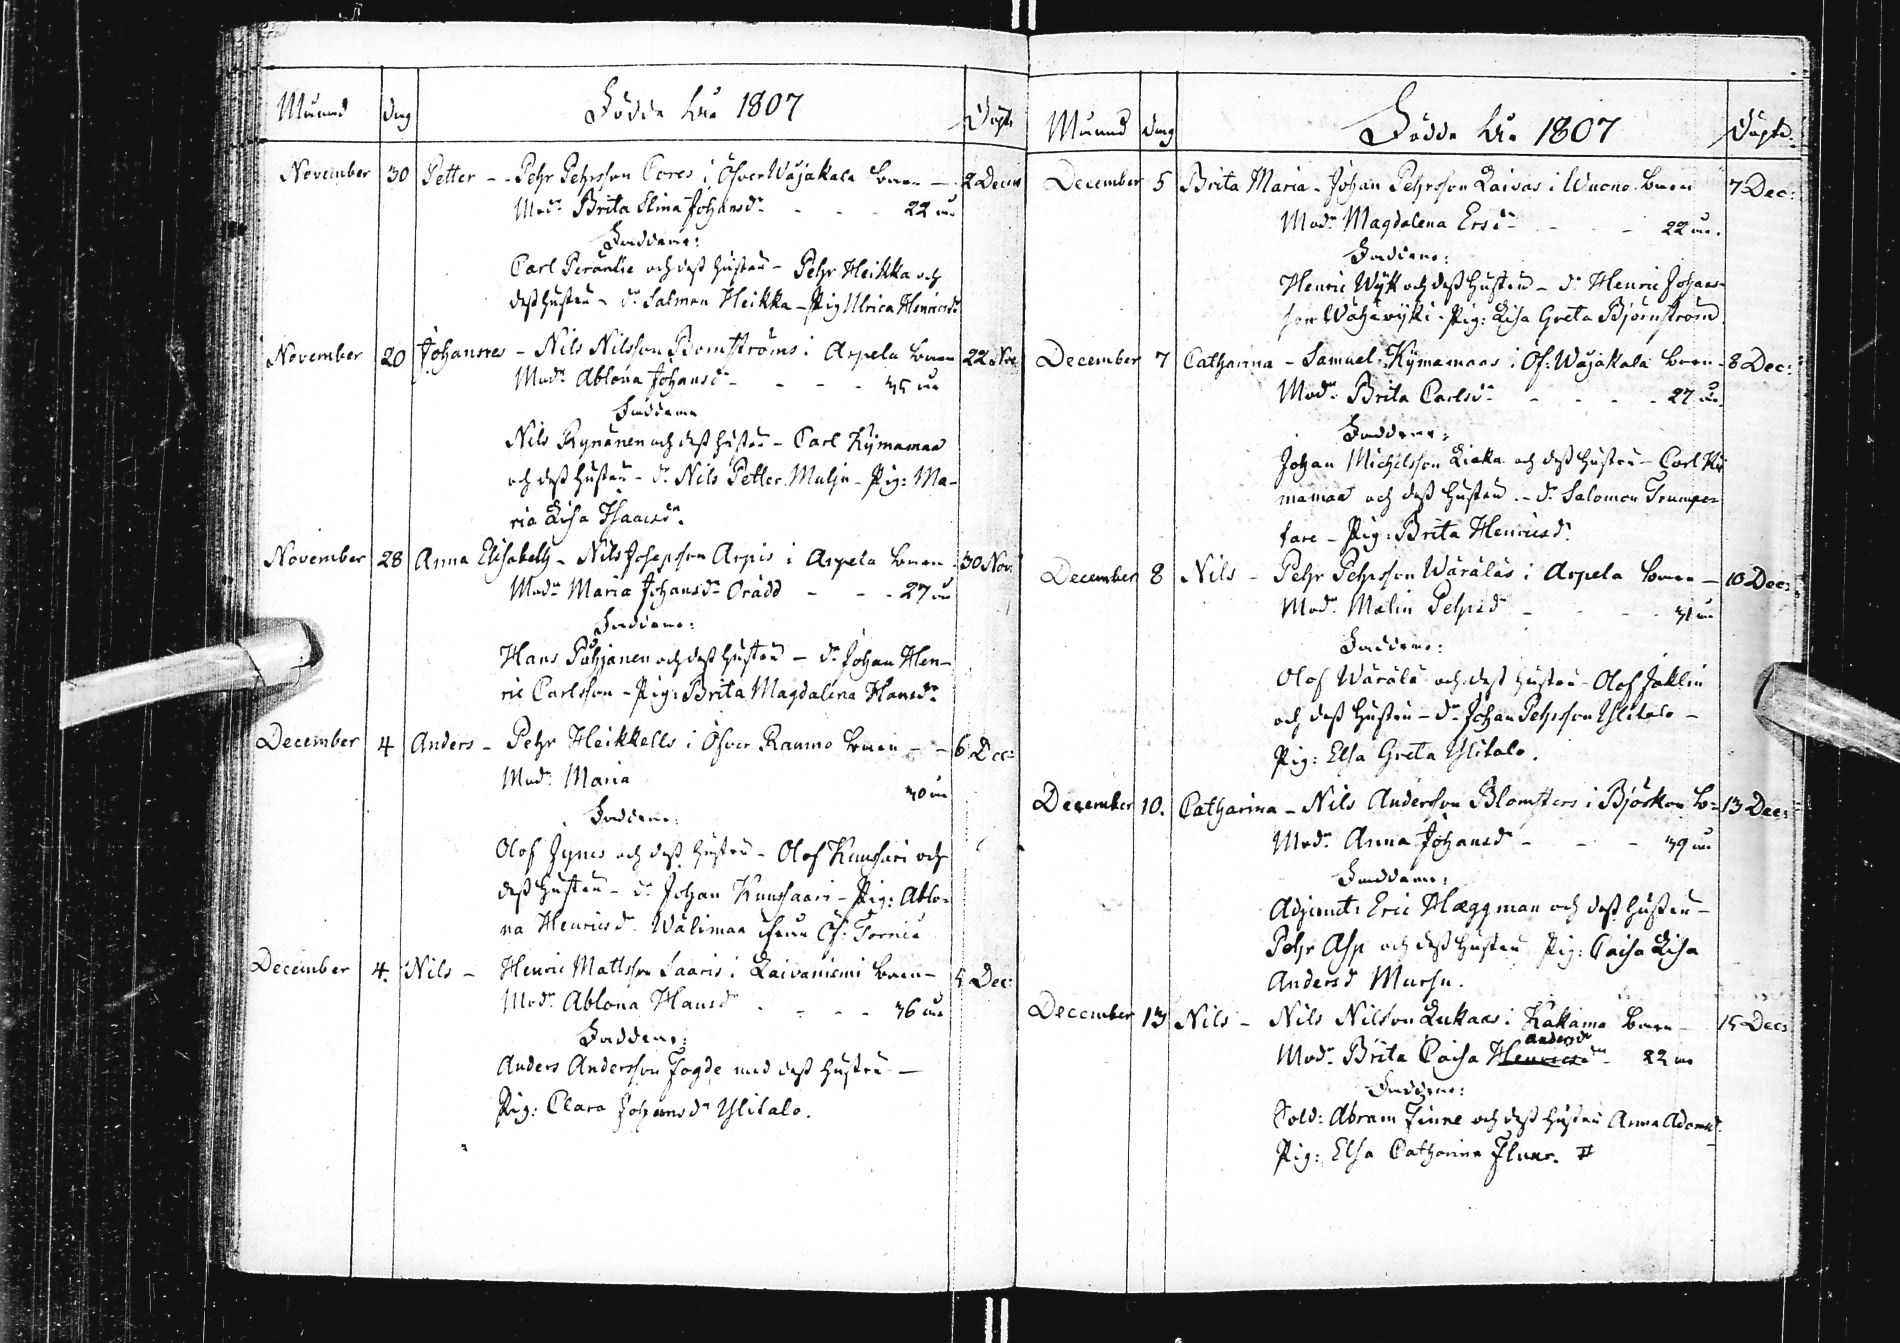 Månad dag Födde År 1807 Döpte
November 30 Petter - Pehr Pehrsson Pores i Öfver Wojakala barn - 2 Decem
Modr Brita Stina Johansdr - - - 22 år
Faddrar:
Carl Peräntie och dess hustru - Pehr Heikka och
dess hustru - dr. Salmon Heikka - Pig Ulrica Henricsdr
November 20 Johannes - Nils Nilsson Bomströms i Arpela barn 22 Nov
Modr Ablona Johansdr - - - - 35 år
Faddrar
Nils Rynänen och dess hustru - Carl Kymamaa
och dess hustru - dr. Nils Petter Mulju - Pig: Ma-
ria Lisa Isaacsdr.
November 28 Anna Elisabeth - Nils Josepsson Arpis i Arpela barn - 30 Nov:
Modr Maria Johansdr Orädd - - - 27 år
Faddrar:
Hans Pohjanen och dess hustru - dr. Johan Hen-
ric Carlsson - Pig: Brita Magdalena Hansdr
December 4 Anders - Pehr Heikkells i Öfver Raumo barn - - 6 Dec:
Modr Maria 30 år
Faddrar:
Olof och dess hustru - Olof Kunsari och
dess hustru - dr. Johan Kunsaari - Pig: Ablo-
na Henricsdr Wälimaa ifrån Öf: Torneå
December 4. Nils - Henric Mattsson Saaris i Laivaniemi barn - 5 Dec:
Modr Ablona Hansdr - - - - 36 år
Faddrar:
Anders Andersson Fogde med dess hustru -
Pig: Clara Johansdr Ylitalo.
Månad dag Födde År 1807 Döpte
December 5 Brita Maria - Johan Pehrsson Laivas i Wuono barn 7 Dec:
Modr Magdalena Ersdr - - - 22 år.
Faddrar:
Henric Wyk och dess hustru - dr. Henric Johans-
son Wähäwyki - Pig: Lisa Greta Björnström
December 7 Catharina - Samuel Kymamaas i Öf: Wojakala barn - 8 Dec:
Modr Brita Carlsdr - - - - 27 år.
Faddrar:
Johan Michelsson Liaka och dess hustru - Carl Ky
mamaa och dess hustru - dr. Salomon Trumpe-
tare - Pig: Brita Henricsdr
December 8 Nils - Pehr Pehrsson Wäräläs i Arpela barn - 10 Dec:
Modr Malin Pehrsdr - - - - 31 år
Faddrar:
Olof Wärälä och dess hustru - Olof Jaklin
och dess hustru - dr Johan Pehrsson Ylitalo -
Pig: Elsa Greta Ylitalo.
December 10. Catharina - Nils Andersson Blomsters i Björkön b: 13 Dec:
Modr Anna Johansdr - - - 39 år
Faddrar:
Adjunct: Eric Hæggman och dess hustru -
Pehr Asp och dess hustru Pig: Caisa Lisa
Andersdr Mursu.
December 13 Nils - Nils Nilsson Lukaas i Kakamo barn - 15 Dec:
Andersdr
Modr Brita Caisa Henricsdr 22 år
Faddrar:
Sold: Abram Finne och dess hustru Anna Adamsdr
Pig: Elsa Catharina